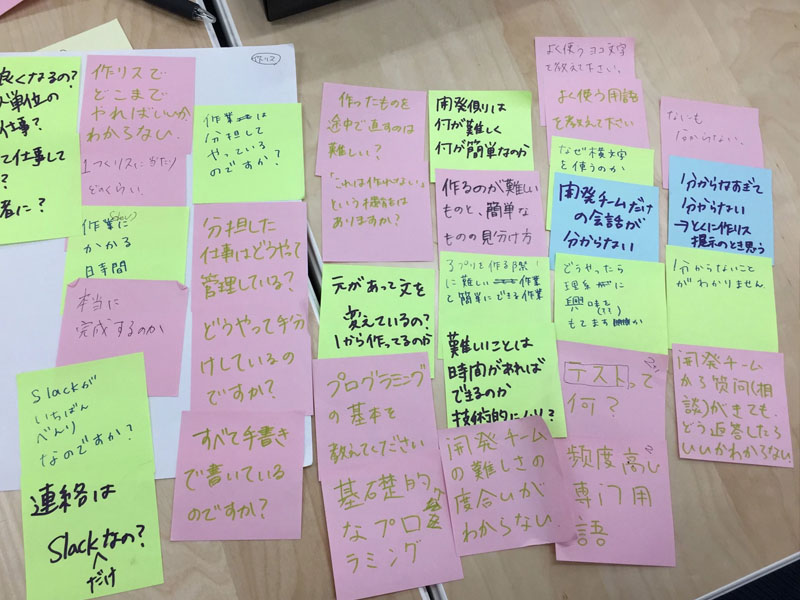 良くなるの?
単位の
仕事?
て仕事して
?
者に?
作リスで
どこまで
やればいいか
わからない.
作リス
1つくリスにあたり
どのくらい
作業に
かかる
日時間
本当に
完成するのか
Slackが
いちばん
べんり
なのですか?
連絡は
Slackなの?
だけ
作業は
分担して
やっている
のですか?
分担した
仕事はどうやって
管理している?
どうやって手分
けしているの
ですか?
すべて手書き
で書いている
のですか?
作ったものを
途中で直すのは
難しい?
「これは作れない」
という機能は
ありますか?
元があって文を
変えているの?
1から作ってるのか
プログラミング
の基本を
教えてください
基礎的
なプロ
ラミング
開発側りは
何が難しく
何が簡単なのか
作るのが難しい
ものと、簡単な
ものの見分け方
アプリを作る際
に難しい作業
と簡単にできる作業
難しいことは
時間があれば
できるのか
技術的にムリ?
開発チーム
の難しさの
度合いが
わからない
よく使うヨコ文字
を教えて下さい.
よく使う用語
を教えて下さい
なぜ横文字
を使うのか
開発チームだけ
の会話が
分からない
どうやったら
理系に
興味て
もてますか
テストって
何?
頻度高い
専門用
語
なにも
分からない.
分からなすぎて
分からない
→とくに作リス
提示のとき思う
分からないこと
がわかりません
開発チーム
から質問(相
談)がきても、
どう返答したら
いいかわからない